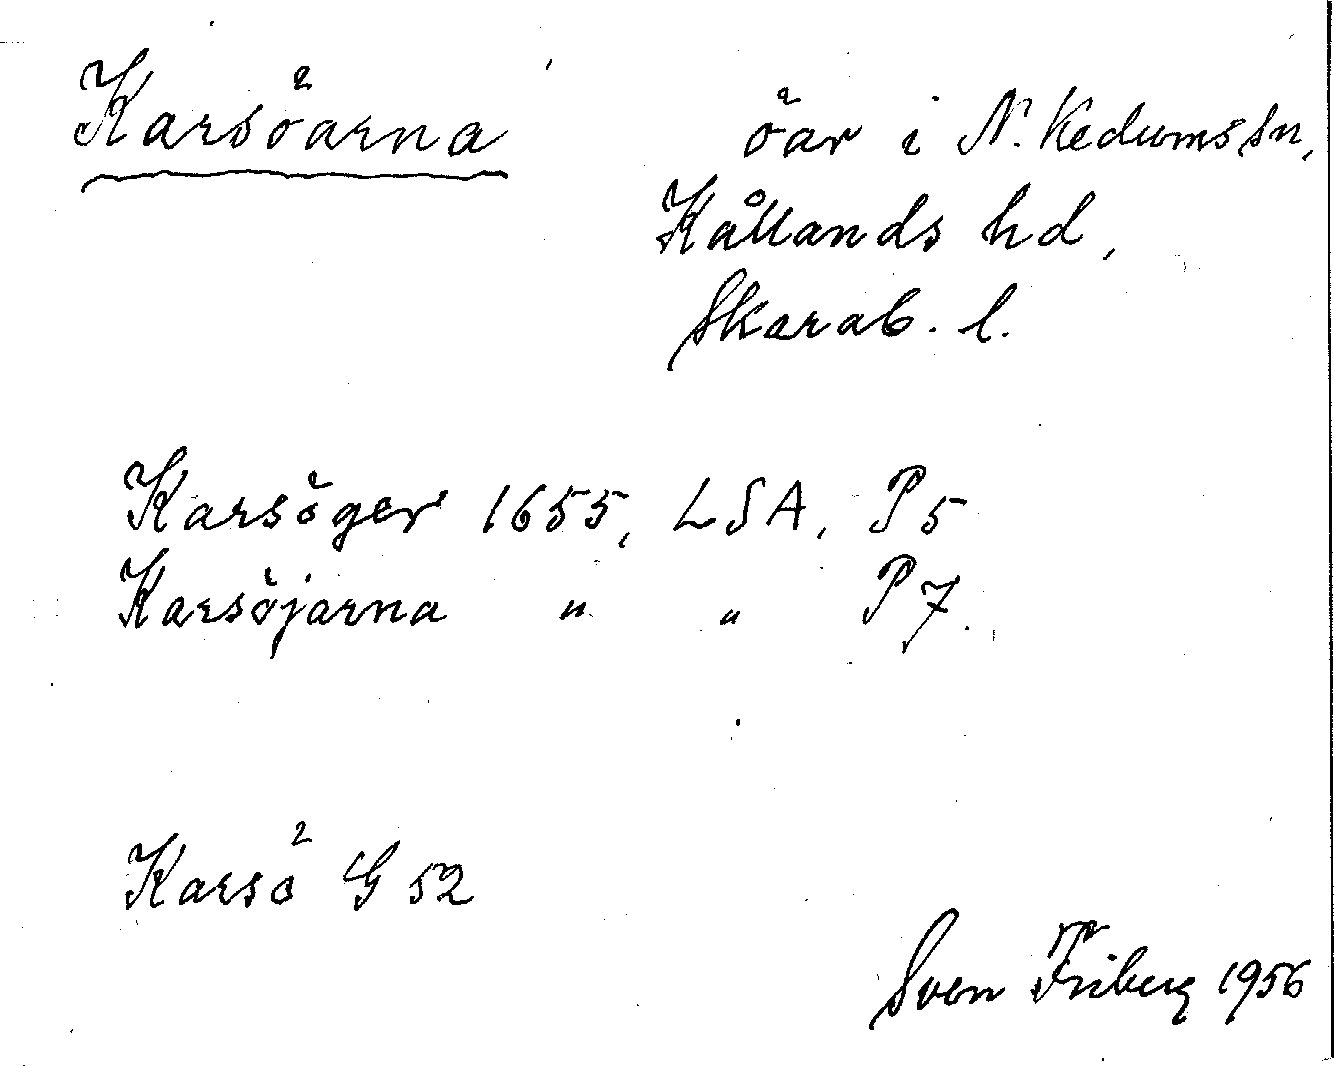 Karsöarna öar i N. Kedums sn,
Kållands hd,
Skarab. l.
Karsöger 1655, LSA, P 5
Karsöjarna " " P 7.
Karsö G 52
Sven Friberg 1956